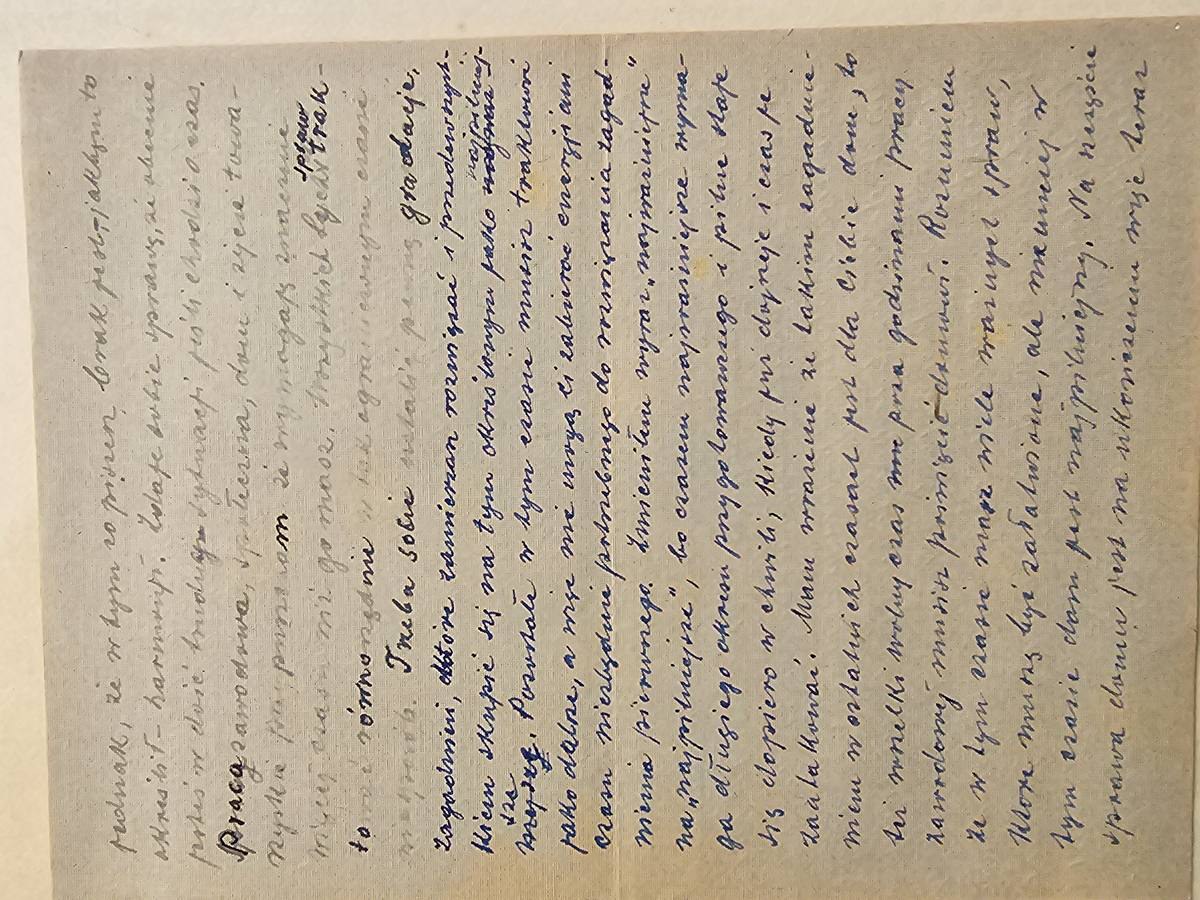 jednak, że w tym co piszesz brak jest – jakbym to
określił – harmonii. Zdaje sobie sprawę, że obecnie
jesteś w dość trudnej sytuacji jeśli chodzi o czas.
Praca zawodowa, społeczna, dom i życie towa-
rzyskie przypuszczam że wymagają znacznie
więcej czasu niż go masz. Wszystkich tych spraw trak-
tować równorzędnie w tak ograniczonym czasie
nie sposób. Trzeba sobie ustalić pewną gradację.
zagadnień, które zamierzasz rozwiązać i przedewszyst-
kiem skupić się na tym określonym jako najpilniej-
sze. Pozostałe w tym czasie musisz traktować
jako dalsze, a więc nie mogą ci zabierać energji ani
czasu niezbędnie potrzebnego do rozwiązania zagad-
nienia pierwszego. Zmieniłem wyraz „najważniejsze"
na „najpilniejsze", bo czasem najważniejsze wyma-
ga długiego okresu przygotowawczego i pilne staje
się dopiero w chwili, kiedy już dojrzeje i czas je
zaatakować. Mam wrażenie że takim zagadnie-
niem w ostatnich czasach jest dla Ciebie dom, to
też wszelki wolny czas poza godzinami pracy
zawodowej musisz poświęcić domowi. Rozumiem
że w tym czasie masz wiele ważnych spraw,
które muszą być załatwione, ale niemniej w
tym czasie dom jest najpilniejszy. Na szczęście
sprawa domu jest na ukończeniu więc teraz